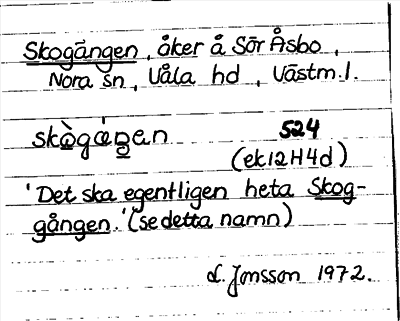 Skogängen, åker å Sör Åsbo,
Nora sn, Våla hd, Västm. l.
skògáŋen 524
(ek12H4d)
'Det ska egentligen heta Skog-
gången.' (se detta namn)
L. Jonsson 1972.